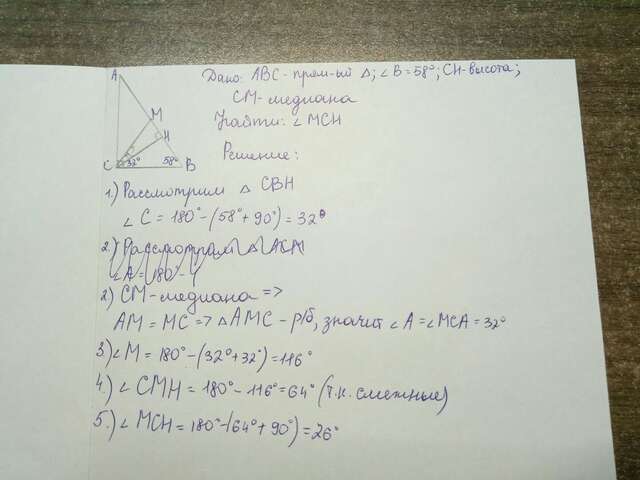 Дано: ABC - прям-ый △; ∠B = 58°; CH - высота;
CM - медиана
Найти: ∠MCH
Решение:
A
M
H
C 32° 58° B
1.) Рассмотрим △ CBH
∠C = 180° - (58° + 90°) = 32°
2.) Рассмотрим △ ACM
∠A = 180 -
2) CM - медиана =>
AM = MC => △AMC - р/б, значит ∠A = ∠MCA = 32°
3.) ∠M = 180° - (32° + 32°) = 116°
4.) ∠CMH = 180° - 116° = 64° (т.к. смежные)
5.) ∠MCH = 180° - (64° + 90°) = 26°